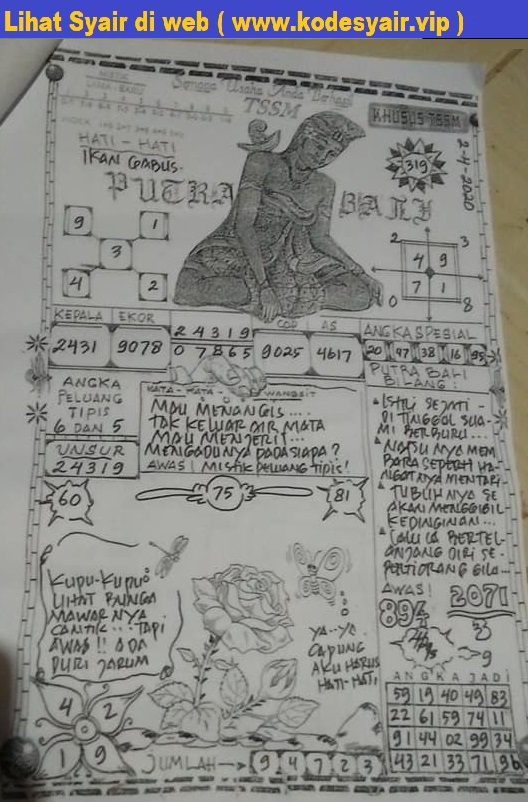 Lihat Syair di web ( www.kodesyair.vip )
TSSM
KHUSUS TSSM
2-4-2020
319
HATI - HATI
IKAN GABUS.
PUTRA BALI
9 1
3
4 2
2 3
4 9
7 1
0 8
KEPALA EKOR
2431 9078
2 4 3 1 9
0 7 8 6 5
COP AS
9025 4617
ANGKA SPESIAL
20 97 38 16 95
ANGKA
PELUANG
TIPIS
6 DAN 5
UNSUR
24319
KATA - KATA WANGSIT
MAU MENANGIS....
TAK KELUAR AIR MATA
MAU MENJERIT...
MENGADUNYA PADA SIAPA?
AWAS! MISTIK PELUANG TIPIS!
PUTRA BALI
BILANG:
ISTRI SEJATI -
DI TINGGAL SUA-
MI BERBURU...
NAFSU NYA MEM
BARA SEPERTI HA-
NGATNYA MENTARI
TUBUH NYA SE
AKAN MENGGIGIL
KEDINGINAN...
LALU IA BERTEL-
ANJANG DIRI SE-
PERTI ORANG GILA...
60
75
81
KUPU-KUPU
LIHAT BUNGA
MAWAR NYA
CANTIK... TAPI
AWAS!! ADA
DURI JARUM
YA..YA.
CAPUNG
AKU HARUS
HATI-HATI
AWAS!
894
2071
9
4 2
1 9
JUMLAH → 9 4 7 2 3
ANGKA JADI
59 19 40 49 83
22 61 59 74 11
91 44 02 99 34
43 21 33 71 96